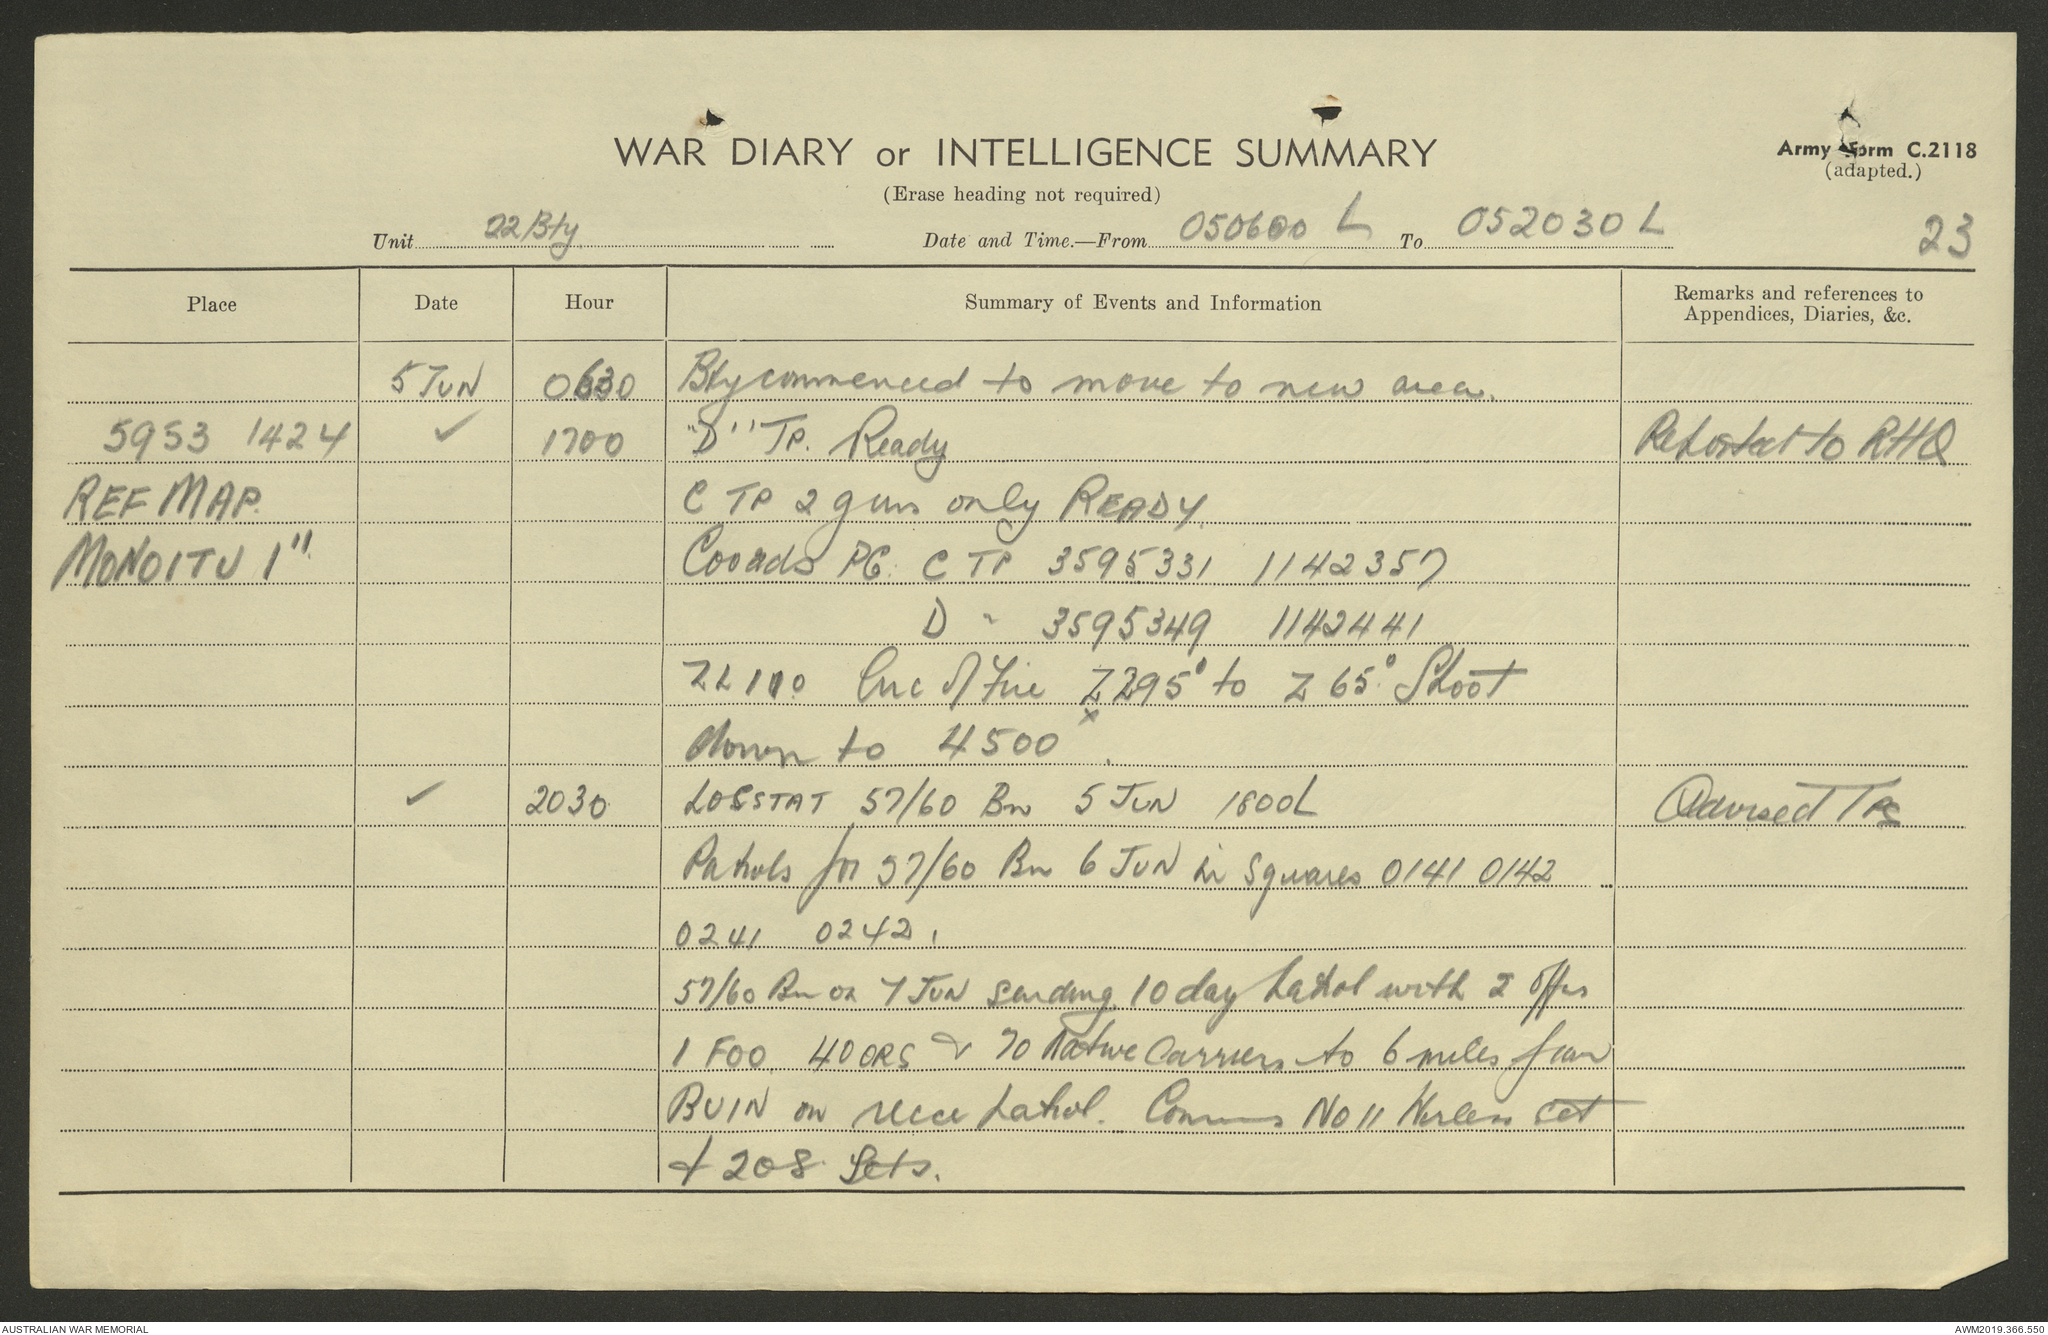 WAR DIARY or INTELLIGENCE SUMMARY
Army Form C.2118
(adapted.)
(Erase heading not required)
Unit 22 Bty Date and Time.—From 050600 L To 052030 L 23
Place Date Hour Summary of Events and Information Remarks and references to Appendices, Diaries, &c.
5 JUN 0630 Bty commenced to move to new area.
5953 1424 ✓ 1700 "D" TP. Ready Reported to RHQ
REF MAP. C TP 2 guns only READY.
MONOITU 1". Coords PC. C TP 3595331 1142357
D " 3595349 1142441
ZL 110 Arc of Fire Z 295° to Z 65° Shoot
down to 4500 x.
✓ 2030 LOCSTAT 57/60 Bn 5 JUN 1800L Advised TPS
Patrols for 57/60 Bn 6 JUN in Squares 0141 0142
0241 0242.
57/60 Bn on 7 JUN sending 10 day patrol with 2 Offrs
1 FOO 40 ORS & 70 Native Carriers to 6 miles from
BUIN on recce patrol. Comms No 11 Wireless set
& 208 Sets.
AUSTRALIAN WAR MEMORIAL
AWM2019.366.550